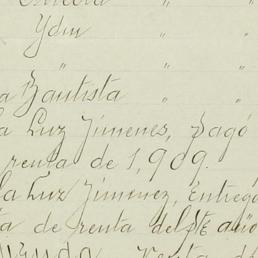 Ydm " "
" " "
a Bautista " "
a Luz Jimenes, Pagó
renta de 1,909.
la Luz Jimenez, Entregó
ta de renta del Ste año
renta d